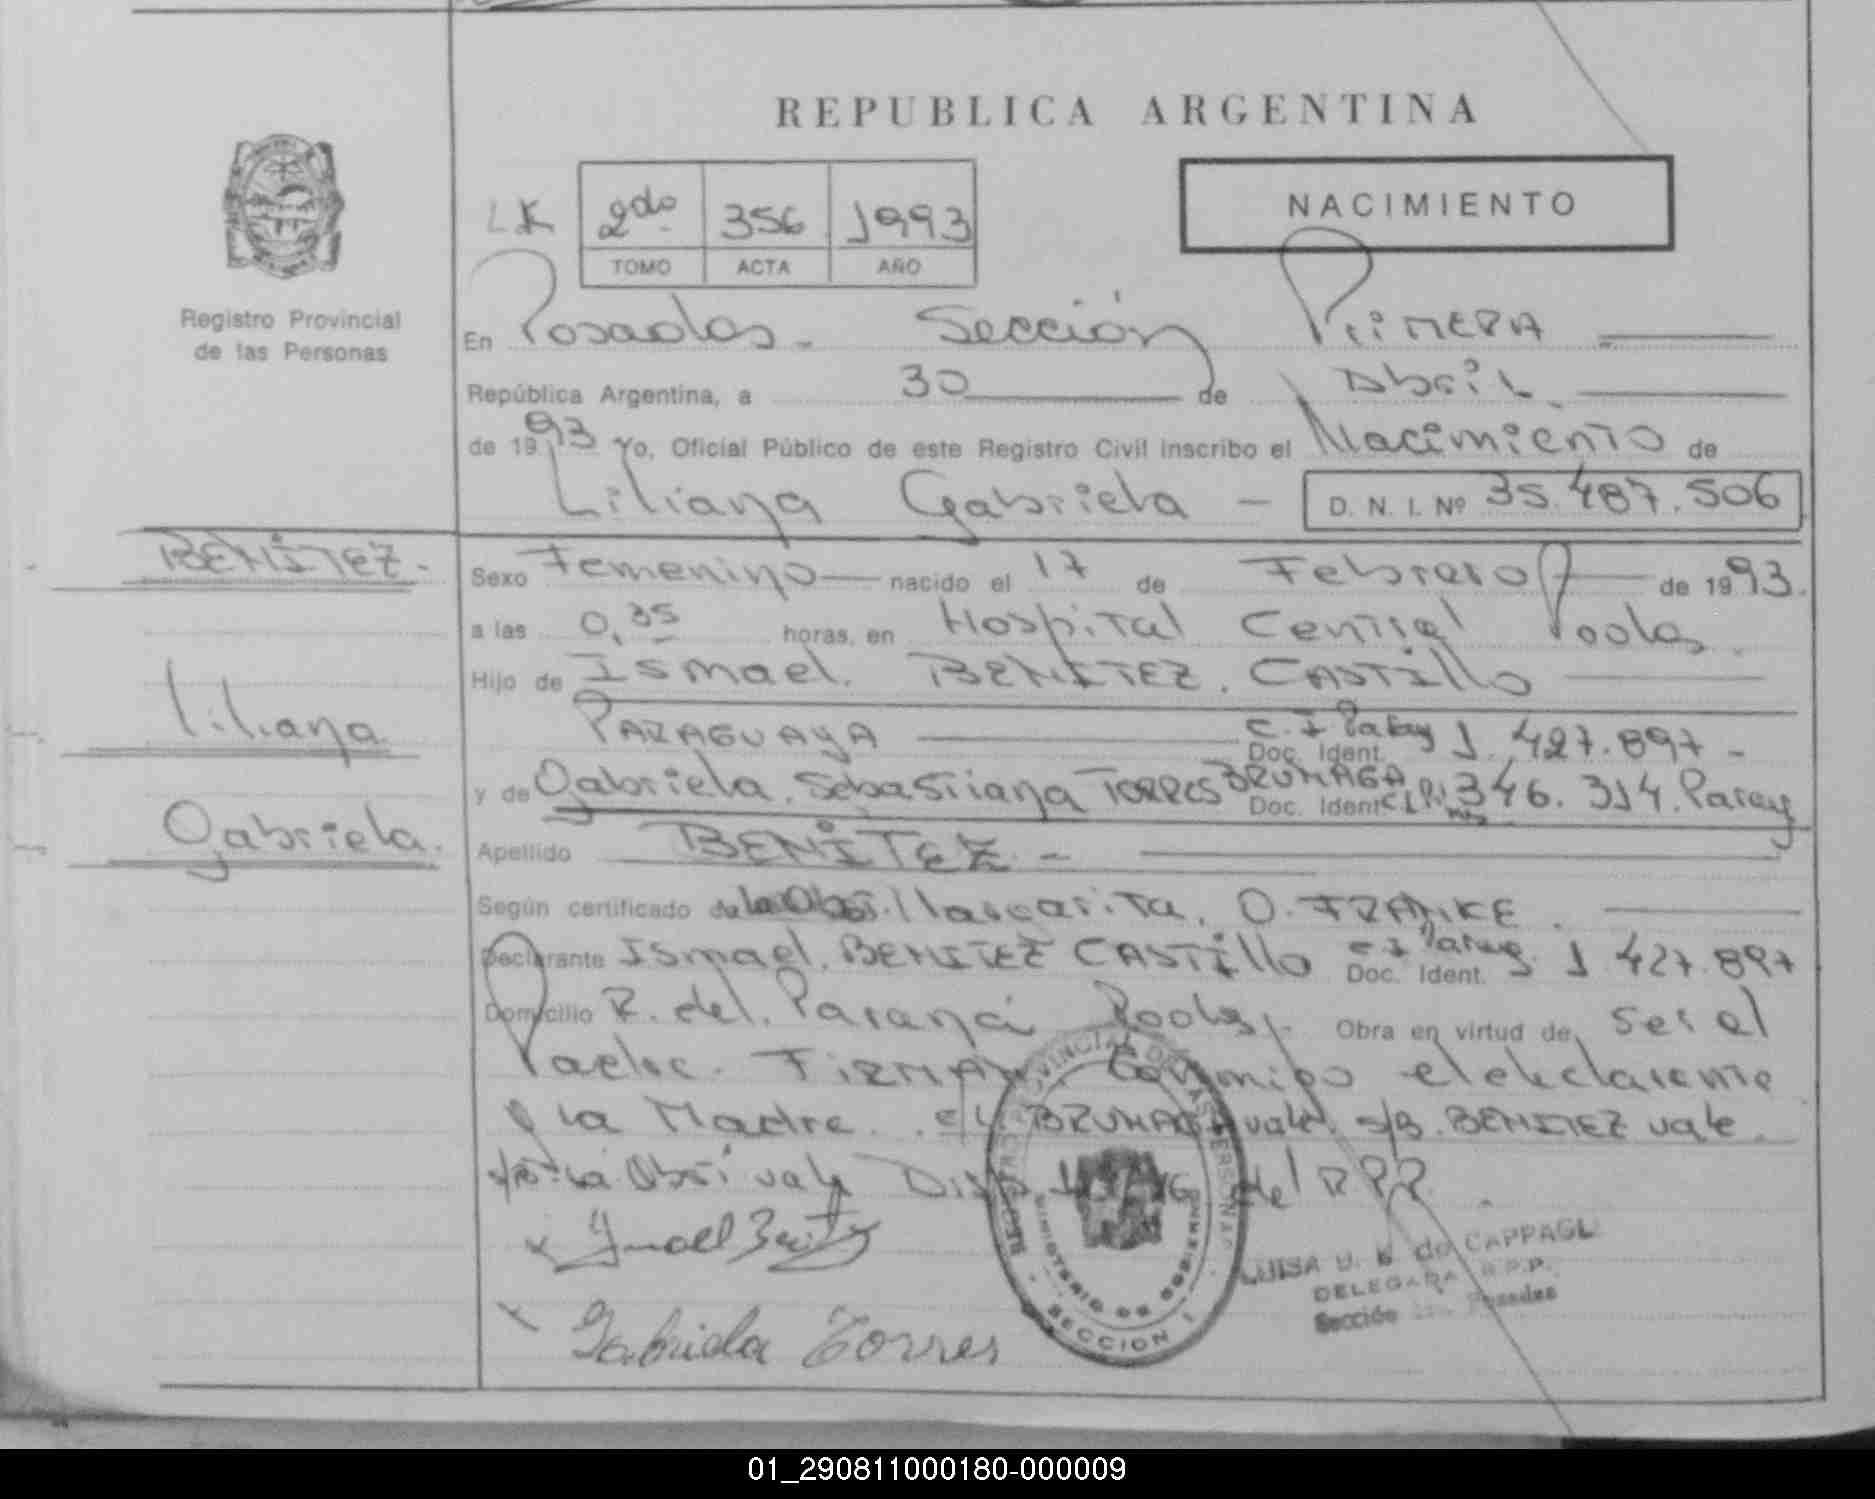 REPUBLICA ARGENTINA
NACIMIENTO
LK 2do 356 1993
TOMO ACTA AÑO
Registro Provincial
de las Personas
En Posadas. Sección Primera
República Argentina, a 30 de Abril
de 1993 Yo, Oficial Público de este Registro Civil inscribo el Nacimiento de
Liliana Gabriela - D. N. I. Nº 35.487.506
BENITEZ.
Liliana
Gabriela.
Sexo Femenino nacido el 17 de Febrero de 1993.
a las 0,35 horas, en Hospital Central Pdas.
Hijo de Ismael. BENITEZ. CASTillo
PARAGUAYA C.I Paray Doc. Ident. 1.427.897-
y de Gabriela. Sebastiana TORRES BRUNAGA Doc. Ident. 346.314. Paray
Apellido BENITEZ.-
Según certificado de la Obst. Margarita. O. FRANKE.
Declarante Ismael. BENITEZ CASTillo C I Paray Doc. Ident. 1 427.897
Domicilio R. del. Paraná Pdas. Obra en virtud de ser el
Padre. FIRMAN Conmigo el declarante
y la Madre. e/L BRUNAGA vale. s/B. BENITEZ vale.
la Obst vale del RPP.
Ismael Benitez
Gabriela Torres
REGISTRO PROVINCIAL DE LAS PERSONAS
MINISTERIO DE GOBIERNO
SECCION I
LUISA de CAPPAGLI
DELEGADA R.P.P.
Sección Posadas
01_290811000180-000009